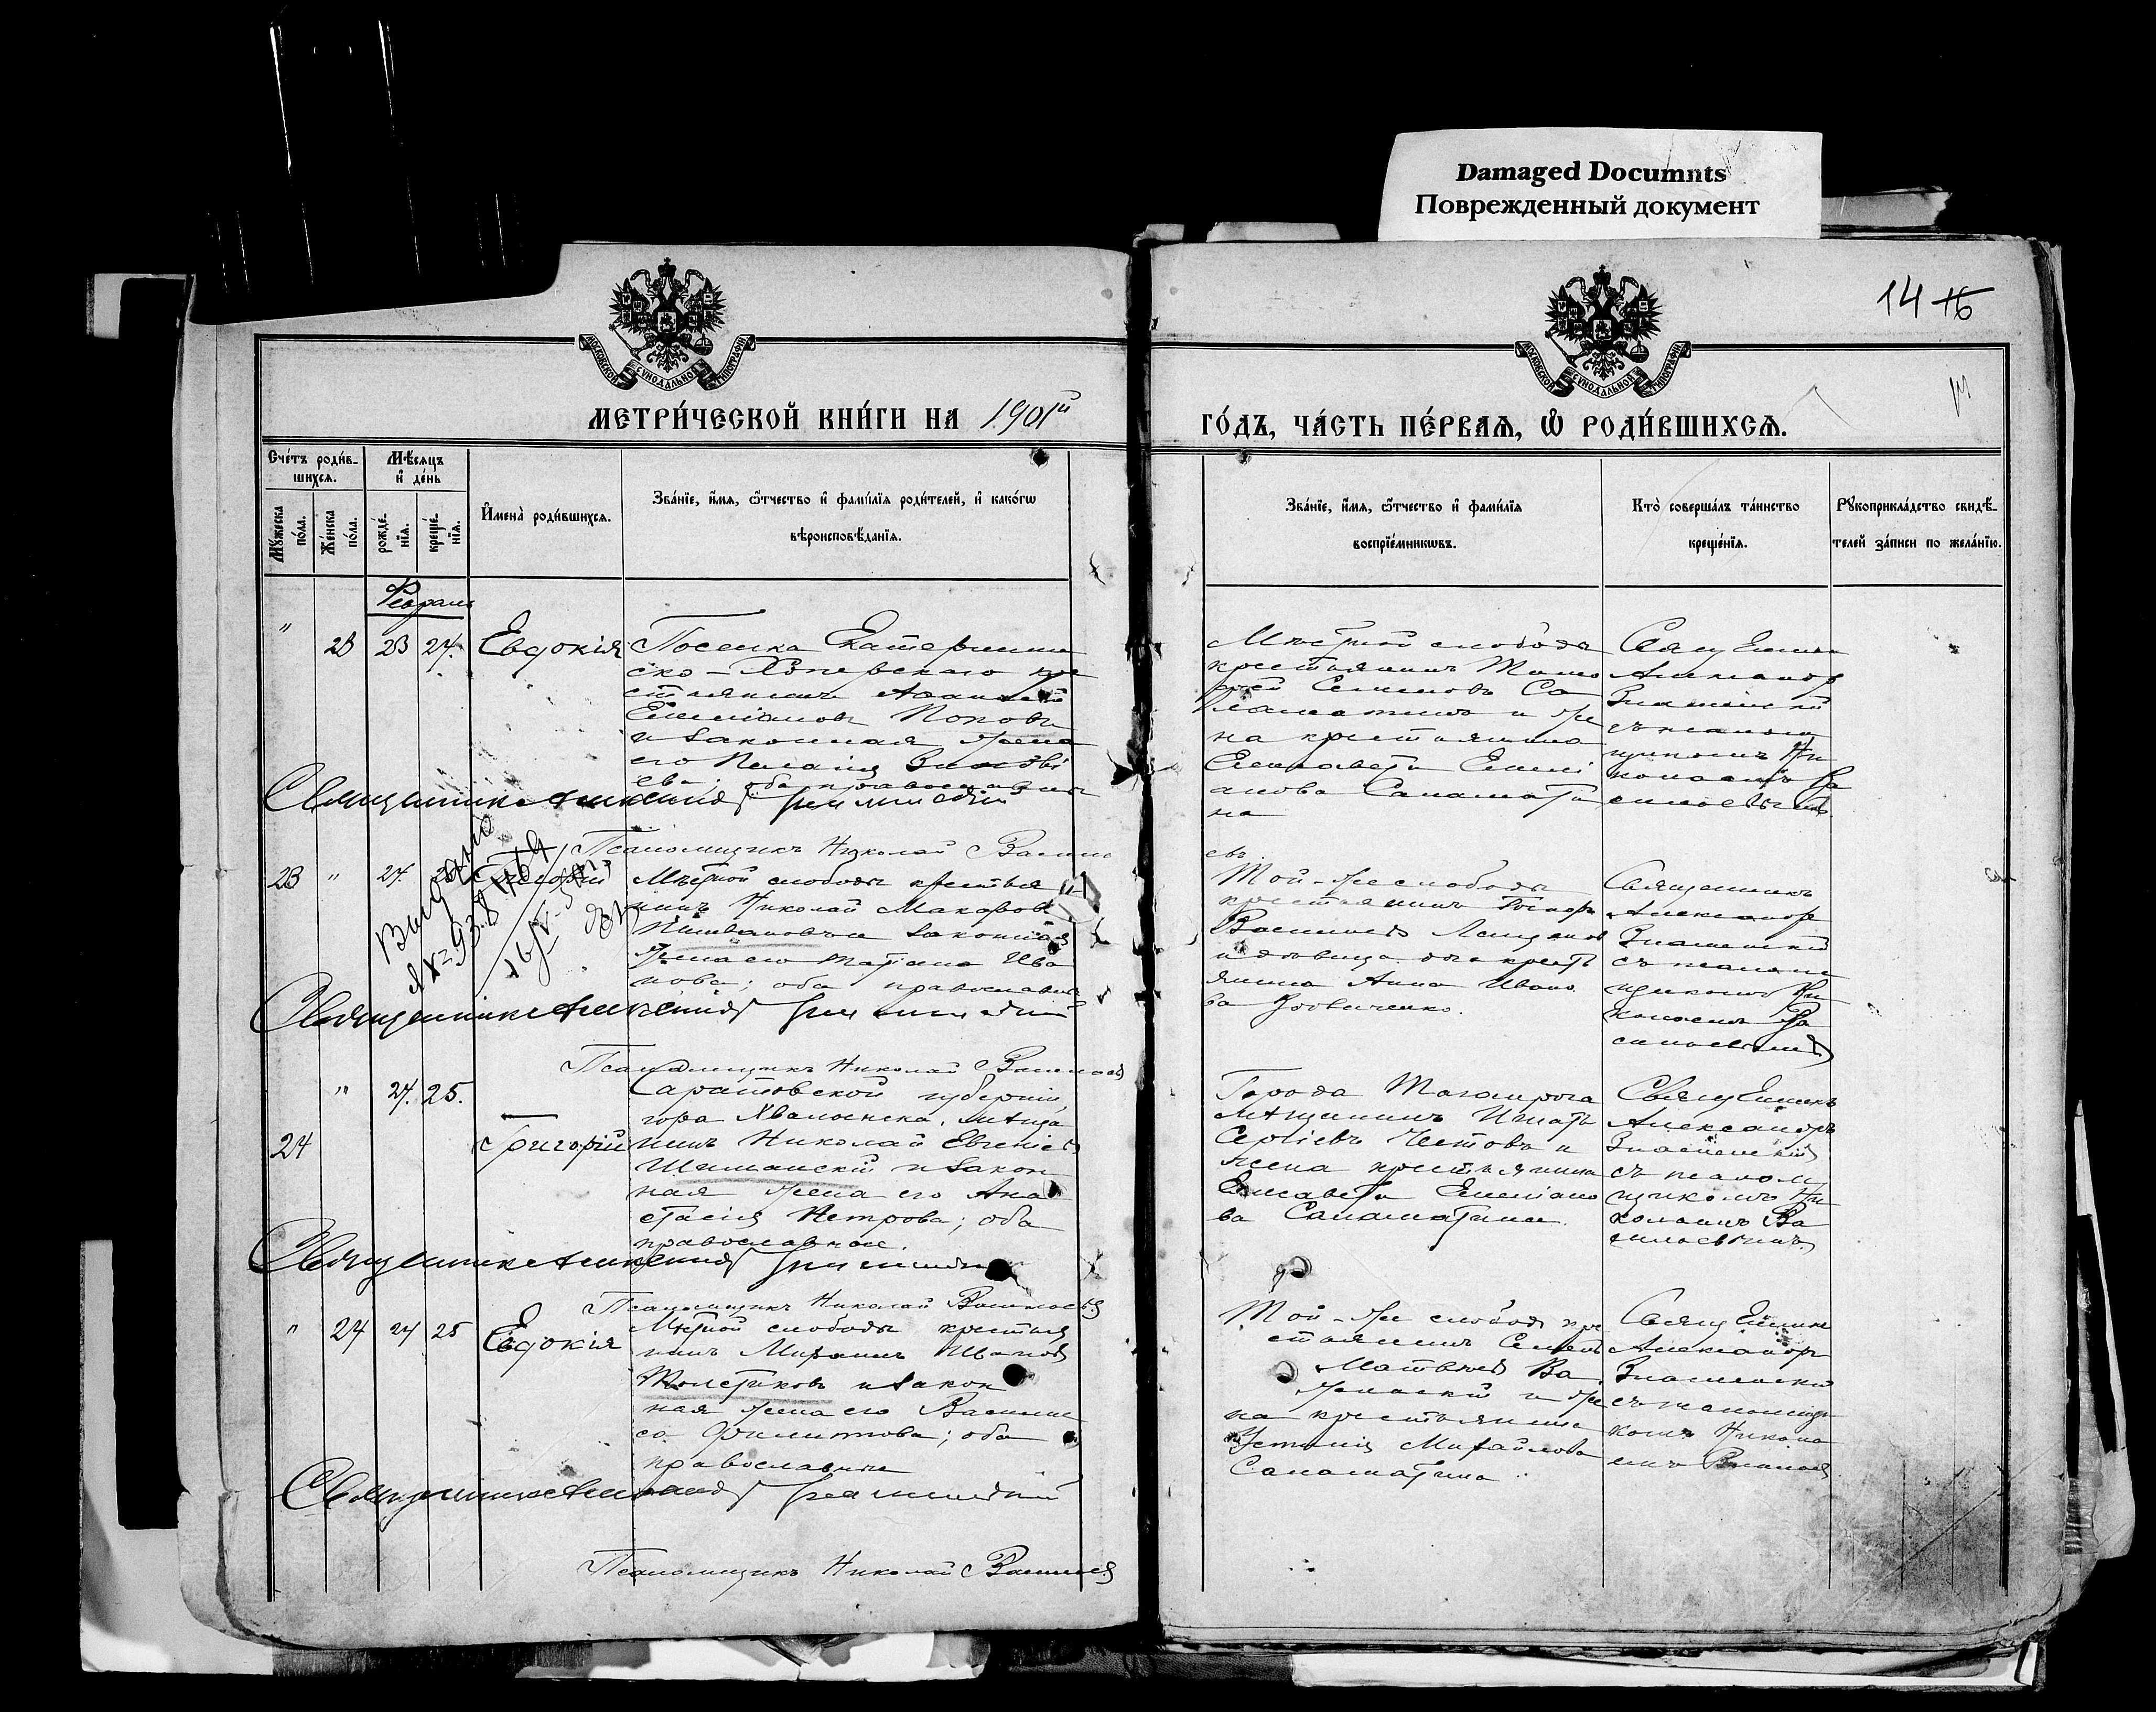 Damaged Documnts
Поврежденный документ
14 16
МОСКОВСКОЙ СѴНОДАЛЬНОЙ ТИПОГРАФІИ
МОСКОВСКОЙ СѴНОДАЛЬНОЙ ТИПОГРАФІИ
МЕТРИ́ЧЕСКОЙ КНИ́ГИ НА 1901й
ГО́ДЪ, ЧА́СТЬ ПЕ́РВАЯ, Ѡ РОДИ́ВШИХСЯ.
Сче́тъ роди́в-
шихся.
Мꙋжеска по́ла.
Же́нска по́ла.
Мѣ́сяцъ и҆ де́нь
рожде́-
нїя.
креще́-
нїя.
И҆мена̀ роди́вшихся.
Зва́нїе, и҆́мя, ѻ҆́тчество и҆ фами́лїя роди́телей, и҆ како́гѡ
вѣроисповѣ́данїя.
Зва́нїе, и҆́мя, ѻ҆́тчество и҆ фами́лїя
воспрїе́мникѡвъ.
Кто̀ соверша́лъ та́инство
креще́нїя.
Рꙋкоприкла́дство свидѣ́-
телей за́писи по жела́нїю.
Февраль
" 23 23 24. Евдокія
Поселка Екатеринин
ско-Хоперскаго кре
стьянинъ
Емеліановъ Поповъ
и законная жена
его Пелагія Зиновьі
ева; оба православные
Мѣстной слободы
крестьянинъ Тимо
фей Семеновъ Са
ламатинъ и же
на крестьянина
Елисавета Емелі
анова Саламати
на
Священникъ
Александръ
Знаменскій
съ псалом
щикомъ Ни
колаемъ Ва
сильевымъ.
Священникъ Александръ Знаменскій
Псаломщикъ Николай Васильевъ
23 " 24.
Выдано
№ 93.
Мѣстной слободы крестья
нинъ Николай Макаровъ
и законная
жена его Татіана Ива
нова; оба православные
Той-же слободы
крестьянинъ
Василіевъ
и дѣвица дочь кресть
янина Анна Ивано
ва
Священникъ
Александръ
Знаменскій
съ псалом
щикомъ Ни
колаемъ Ва
сильевымъ
Священникъ Александръ Знаменскій
Псаломщикъ Николай Васильевъ
24 " 24. 25. Григорій
Саратовской губерніи
гора Хвалынска, мѣща
нинъ Николай Евгеніевъ
Шиманскій и закон
ная жена его Ана
стасія Петрова; оба
православные.
Города Таганрога
мѣщанинъ Игнатъ
Сергіевъ Честовъ и
жена крестьянина
Елисавета Емеліано
ва Саламатина.
Священникъ
Александръ
Знаменскій
съ псалом
щикомъ Ни
колаемъ Ва
сильевымъ.
Священникъ Александръ Знаменскій
Псаломщикъ Николай Васильевъ
" 24 24 25 Евдокія
Мѣстной слободы крестья
нинъ Миронъ Ивановъ
Толстиковъ и закон
ная жена его Васили
са Филиппова; оба
православные
Той-же слободы кре
стьянинъ Семенъ
Матвѣевъ Ва
и же
на крестьянина
Устинія Михайлова
Саламатина.
Священникъ
Александръ
Знаменскій
съ псаломщи
комъ Никола
емъ Васильев
Священникъ Александръ Знаменскій
Псаломщикъ Николай Васильевъ